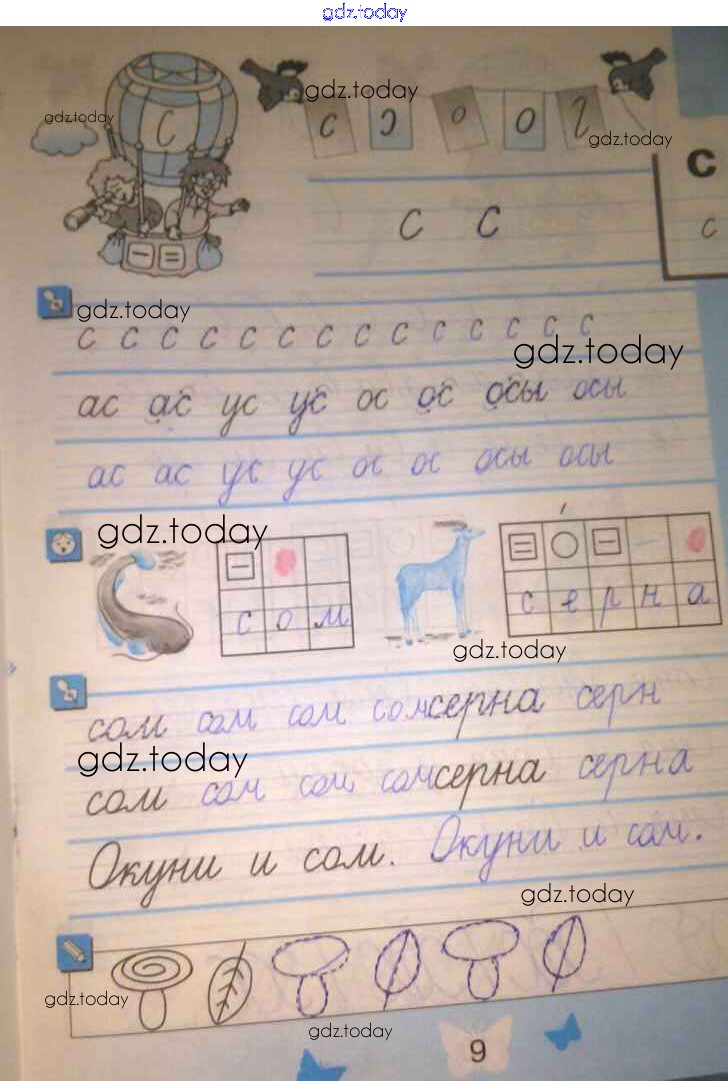 gdz.today
gdz.today
gdz.today
С
с с о о
gdz.today
с
с с
с
gdz.today
с с с с с с с с с с с с с с
gdz.today
ас ас ус ус ос ос осы осы
ас ас ус ус ос ос осы осы
gdz.today
с о м
с е р н а
gdz.today
сом сом сом сом серна серн
gdz.today
сом сом сом сом серна серна
Окуни и сом. Окуни и сом.
gdz.today
gdz.today
gdz.today
9